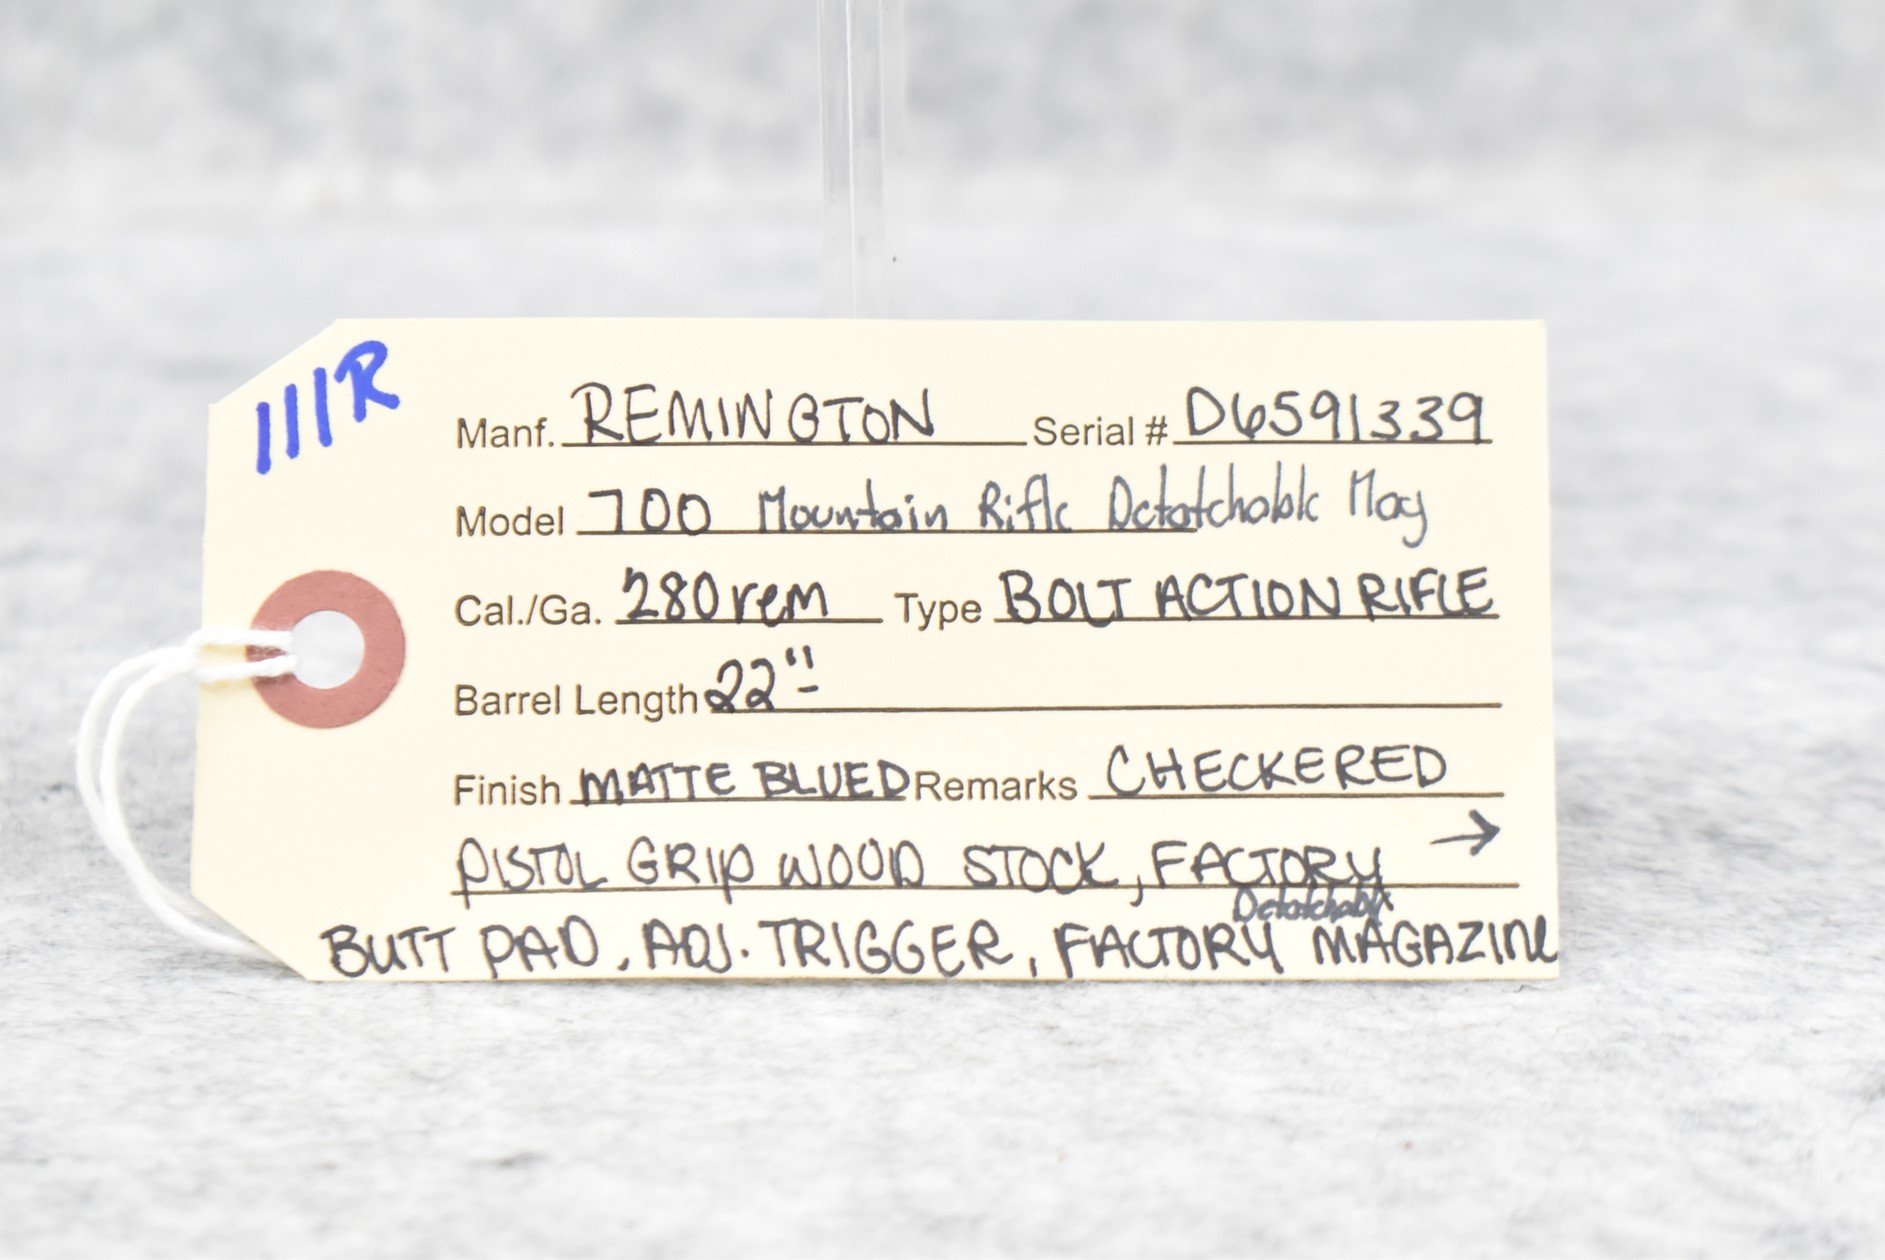 111R
Manf. REMINGTON Serial # D6591339
Model 700 Mountain Rifle Detatchable Mag
Cal./Ga. 280 rem Type BOLT ACTION RIFLE
Barrel Length 22"
Finish MATTE BLUED Remarks CHECKERED
PISTOL GRIP WOOD STOCK, FACTORY →
Detatchable
BUTT PAD, ADJ. TRIGGER, FACTORY MAGAZINE